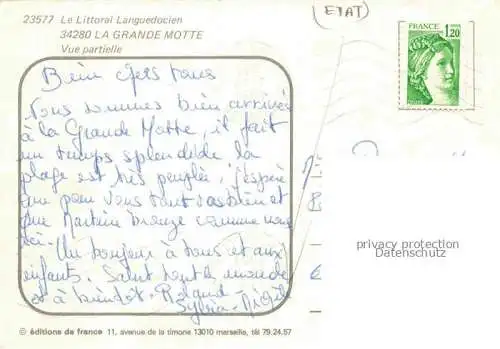 23577 Le Littoral Languedocien
34280 LA GRANDE MOTTE
Vue partielle
(ETAT)
FRANCE
1,20
Bien chers tous
Nous sommes bien arrivés
à la Grande Motte, il fait
un temps splendide la
plage est très peuplée, j'espère
que pour vous tout va bien et
que Martine bronze comme nous
ici. Un bonjour à tous et aux
enfants. Salut tout le monde
et à bientôt. Roland
Sylvia
privacy protection
Datenschutz
© éditions de france 11, avenue de la timone 13010 marseille, tél 79.24.57